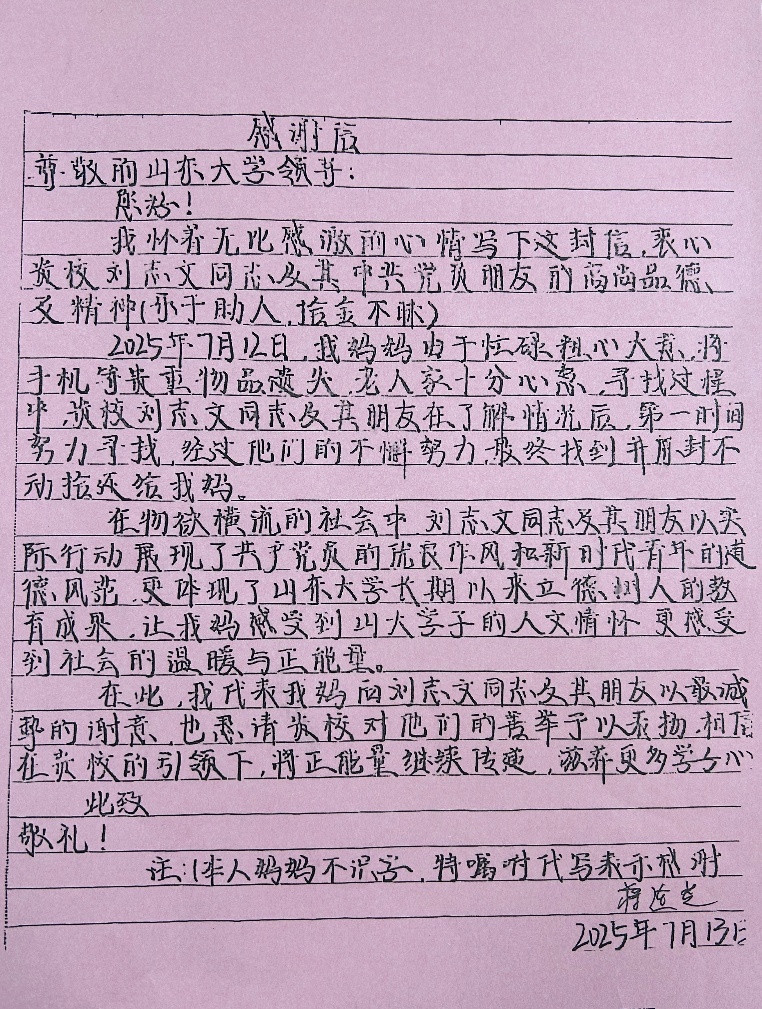 感谢信
尊敬的山东大学领导:
您好!
我怀着无比感激的心情写下这封信,衷心
贵校刘志文同志及其中共党员朋友的高尚品德
及精神(乐于助人,拾金不昧)
2025年7月12日,我妈妈由于忙碌粗心大意,将
手机等贵重物品遗失,老人家十分心急,寻找过程
中,贵校刘志文同志及其朋友在了解情况后,第一时间
努力寻找,经过他们的不懈努力,最终找到并原封不
动捡还给我妈。
在物欲横流的社会中,刘志文同志及其朋友以实
际行动展现了共产党员的优良作风和新时代青年的道
德风范,更体现了山东大学长期以来立德树人的教
育成果,让我妈感受到山大学子的人文情怀,更感受
到社会的温暖与正能量。
在此,我代表我妈向刘志文同志及其朋友以最诚
挚的谢意,也恳请贵校对他们的善举予以表扬,相信
在贵校的引领下,将正能量继续传递,滋养更多学子心
此致
敬礼!
注:(本人妈妈不识字,特嘱咐代写表示感谢
2025年7月13日